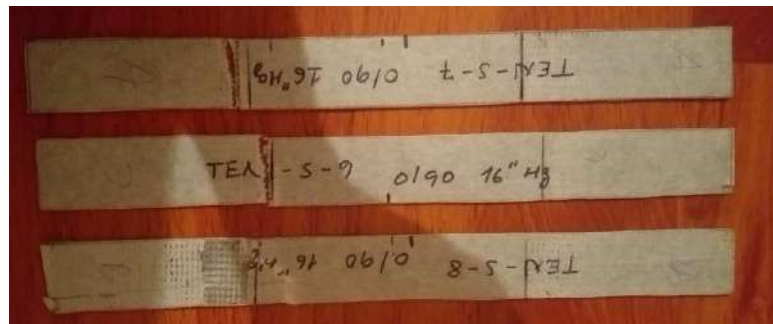 TEN-S-7 0/90 16"Hg
TEN-S-9 0/90 16"Hg
TEN-S-8 0/90 16"Hg